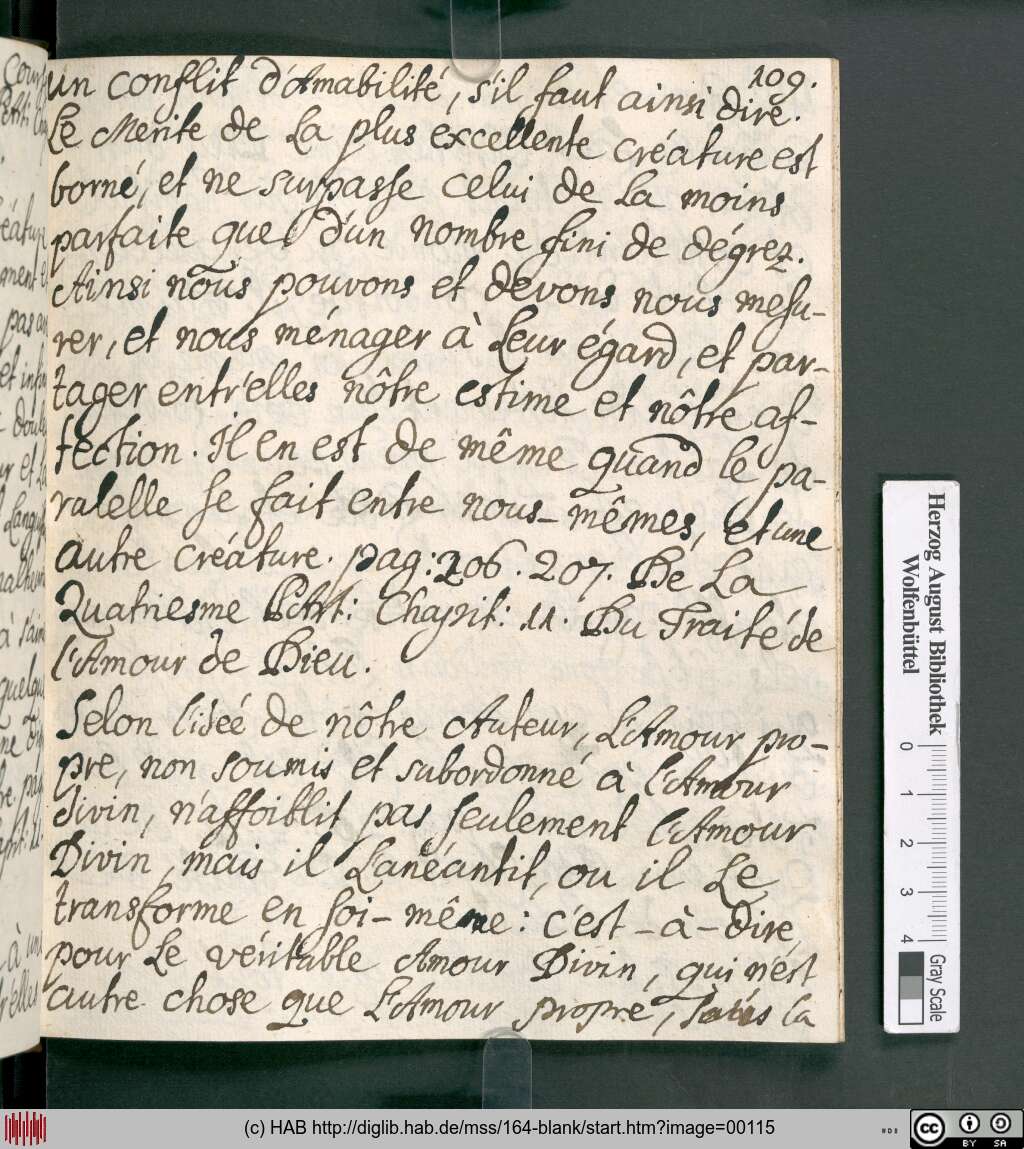 109.
un conflit d'Amabilité, s'il faut ainsi dire.
Le Merite de La plus excellente créature est
borné, et ne surpasse celui de La moins
parfaite que d'un nombre fini de dégrez.
Ainsi nous pouvons et devons nous mesu-
rer, et nous ménager à Leur égard, et par-
tager entr'elles nôtre estime et nôtre af-
fection. Il en est de même quand le pa-
ralelle se fait entre nous-mêmes, et une
autre créature. pag: 206. 207. De La
Quatriesme Part: Chapit: 11. Du Traité de
l'Amour de Dieu.
Selon l'ideé de nôtre Auteur, L'Amour pro-
pre, non soumis et subordonné à l'Amour
divin, n'affoiblit pas seulement l'Amour
Divin, mais il L'anéantit, ou il Le
transforme en soi-même: c'est-à-dire,
pour Le véritable Amour Divin, qui n'est
autre chose que L'Amour propre, la
Herzog August Bibliothek
Wolfenbüttel
0 1 2 3 4
Gray Scale
(c) HAB http://diglib.hab.de/mss/164-blank/start.htm?image=00115
cc BY SA